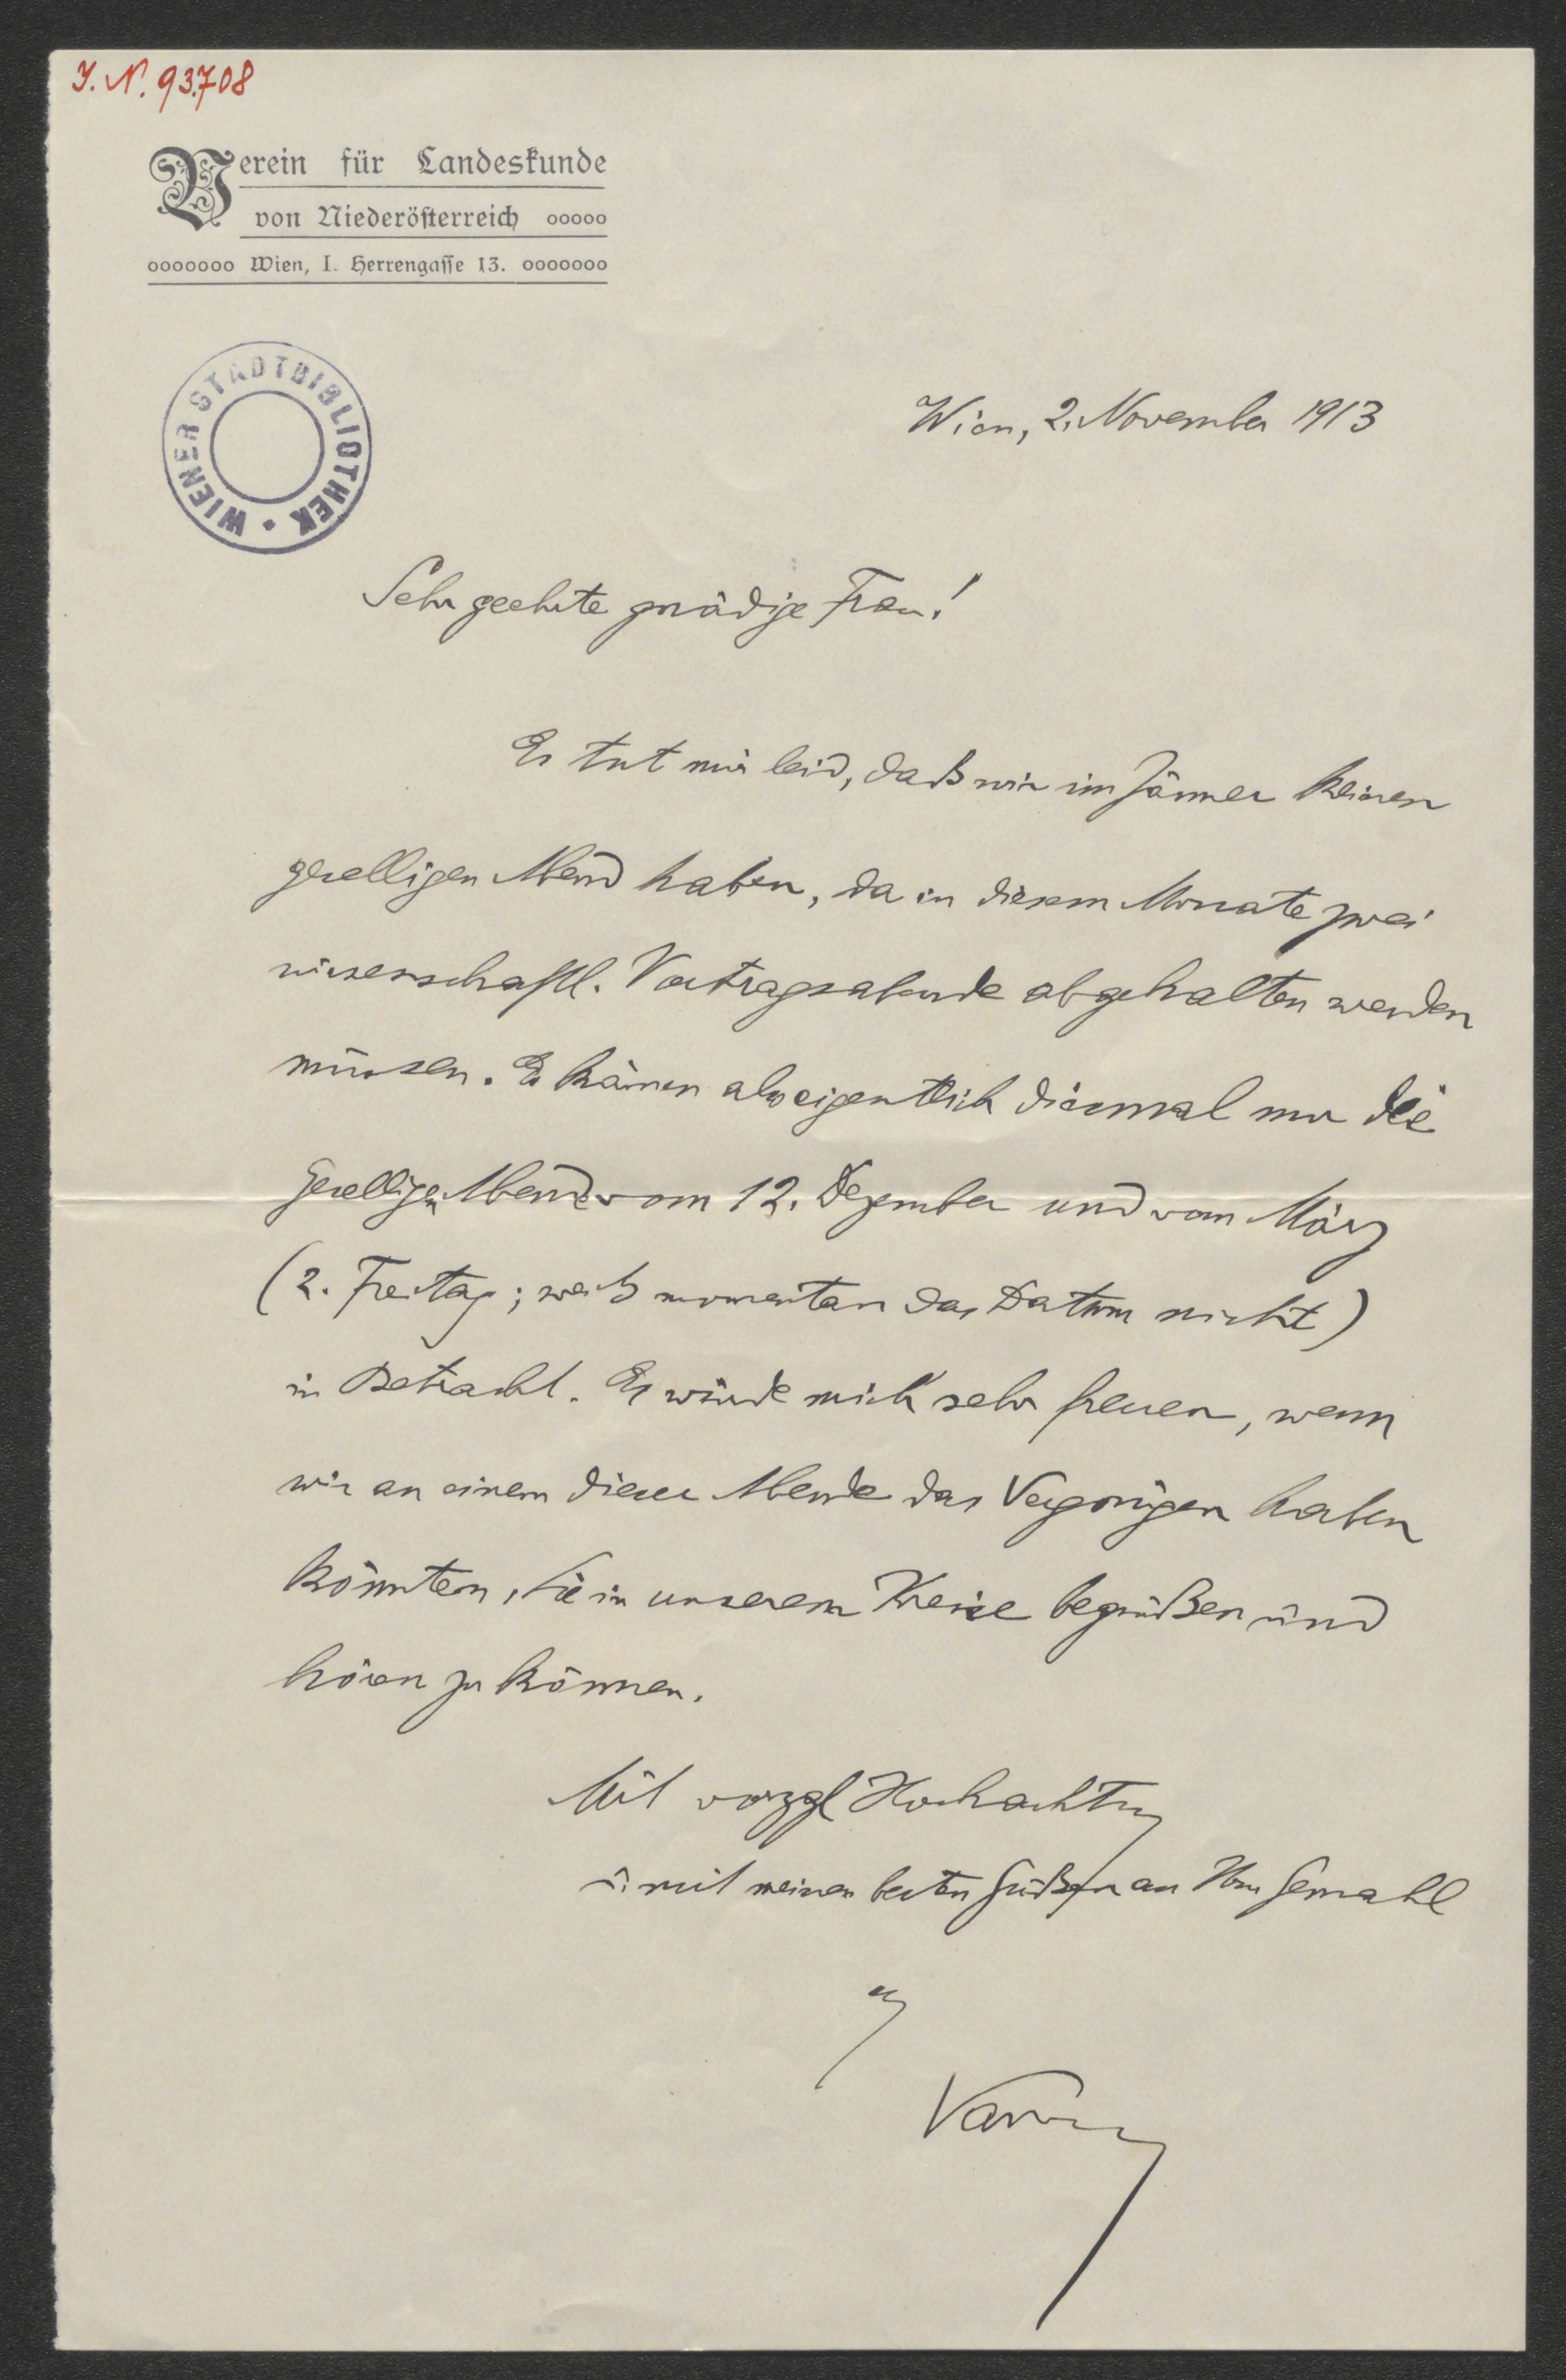 J. N. 93.708
Verein für Landeskunde
von Niederösterreich ooooo
ooooooo Wien, I. Herrengasse 13. ooooooo
WIENER STADTBIBLIOTHEK
Wien, 2. November 1913
Sehr geehrte gnädige Frau!
Es tut mir leid, daß wir im Jänner keinen
geselligen Abend haben, da in diesem Monate zwei
wissenschaftl. Vortragsabende abgehalten werden
müssen. Es kämen also eigentlich diesmal nur die
geselligen Abende vom 12. Dezember und vom März
(2. Freitag; weiß momentan das Datum nicht)
in Betracht. Es würde mich sehr freuen, wenn
wir an einem dieser Abende das Vergnügen haben
könnten, Sie in unserem Kreise begrüßen und
hören zu können.
Mit vorzgl Hochachtung
u. mit meinen besten Grüßen an Ihren Gemahl